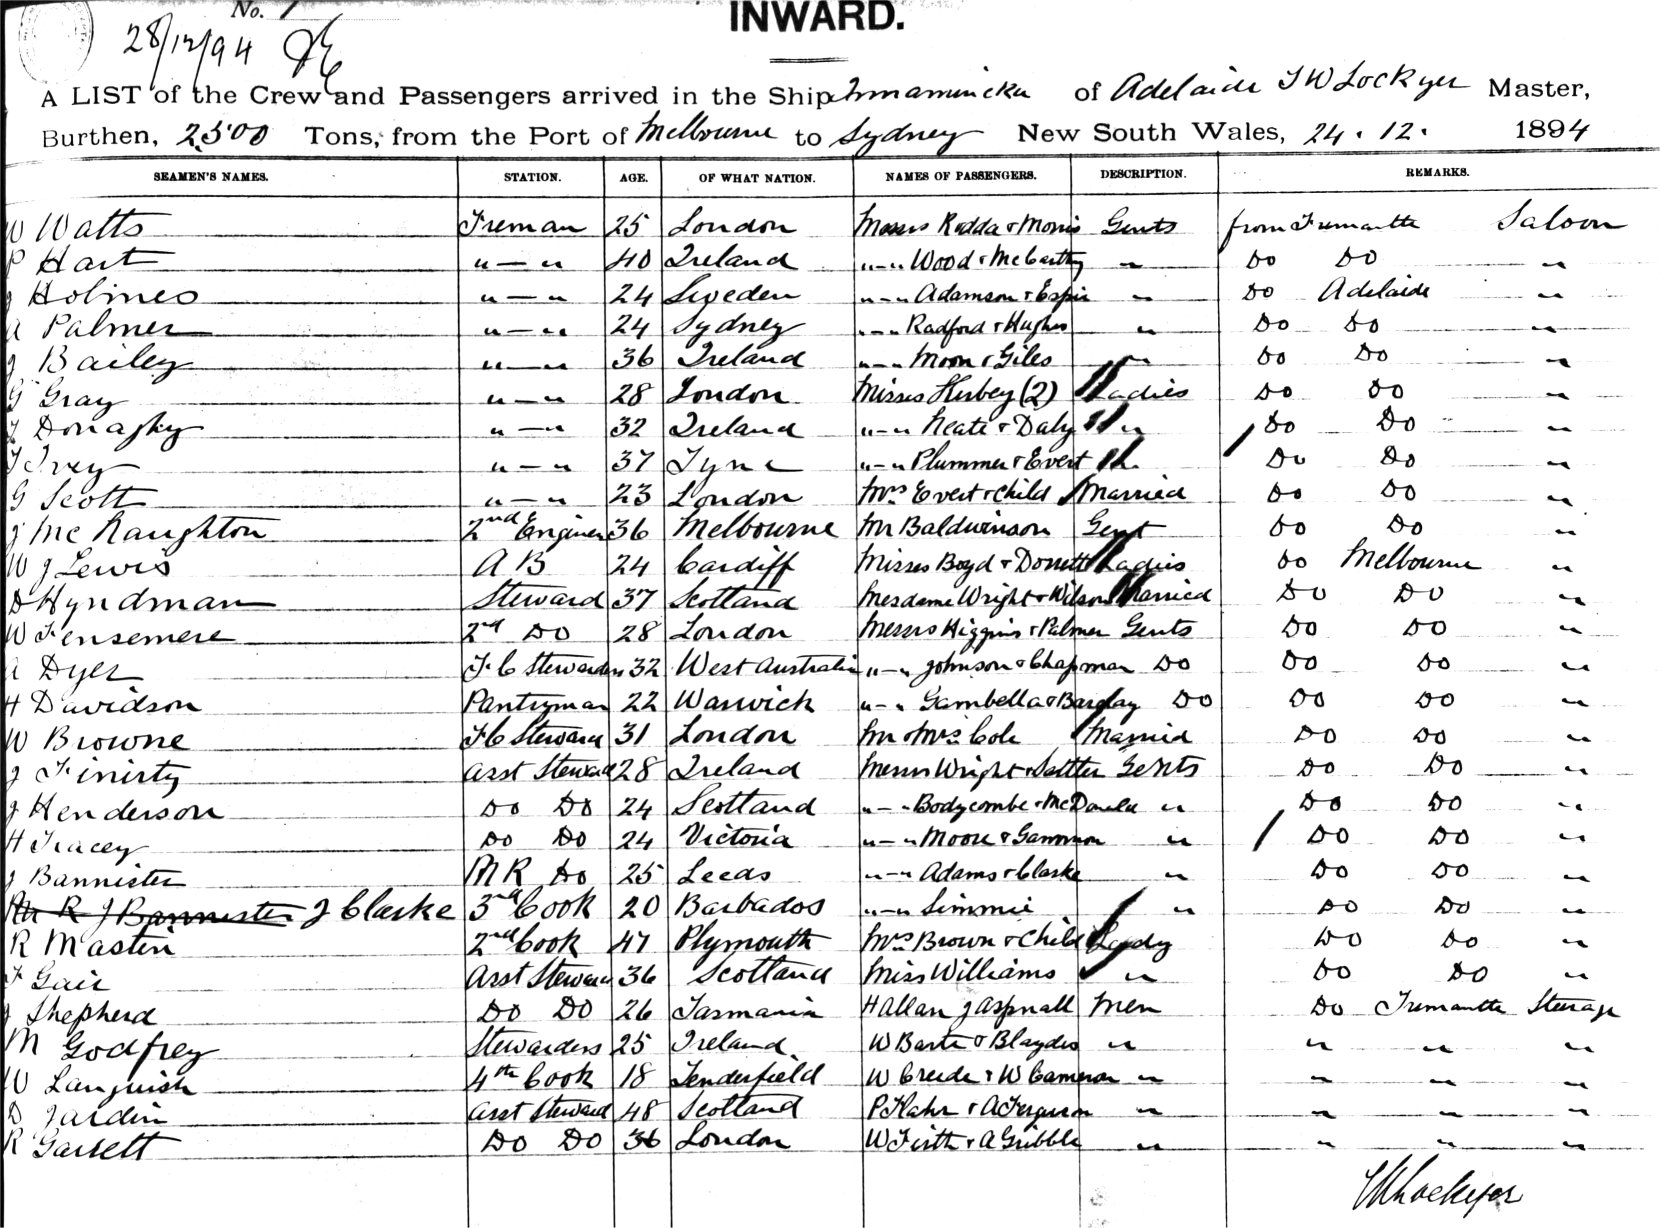 No. 1
INWARD.
28/12/94
A LIST of the Crew and Passengers arrived in the Ship Innamincka of Adelaide T W Lockyer Master,
Burthen, 2500 Tons, from the Port of Melbourne to Sydney New South Wales, 24 . 12 . 1894
SEAMEN'S NAMES. STATION. AGE. OF WHAT NATION. NAMES OF PASSENGERS. DESCRIPTION. REMARKS.
W Watts Fireman 25 London Messrs Rodda & Morris Gents from Fremantle Saloon
P Hart " — " 40 Ireland " — " Wood & McCarthy " Do Do "
J Holmes " — " 24 Sweden " — " Adamson & Espie " Do Adelaide "
A Palmer " — " 24 Sydney " — " Radford & Hughes " Do Do "
J Bailey " — " 36 Ireland " — " Moon & Giles " Do Do "
G Gray " — " 28 London Misses (2) Ladies Do Do "
Donaghy " — " 32 Ireland " — " Neate & Daly " Do Do "
T Ivey " — " 37 Tyne " — " Plummer & Evert " Do Do "
G Scott " — " 23 London Mrs Evert & Child Married Do Do "
J McNaughton 2nd Engineer 36 Melbourne Mr Baldwinson Gent Do Do "
W J Lewis A B 24 Cardiff Misses Boyd & Ladies Do Melbourne "
D Hyndman Steward 37 Scotland Mesdame Wright & Wilson Married Do Do "
W Fensemere 2nd Do 28 London Messrs Higgins & Palmer Gents Do Do "
A Dyer F C Stewardess 32 West Australia " — " Johnson & Chapman Do Do Do "
H Davidson Pantryman 22 Warwick " — " Gambella & Barclay Do Do Do "
W Browne F C Steward 31 London Mr & Mrs Cole Married Do Do "
J Finisty Asst Steward 28 Ireland Messrs Wright & Gents Do Do "
J Henderson Do Do 24 Scotland " — " Bodycombe & McDonald " Do Do "
H Tracey Do Do 24 Victoria " — " Moore & Gammon " Do Do "
J Bannister M R Do 25 Leeds " — " Adams & Clarke " Do Do "
M R J Bannister J Clarke 3rd Cook 20 Barbados " — " Simmie " Do Do "
R Masten 2nd Cook 47 Plymouth Mrs Brown & Child Lady Do Do "
F Gair Asst Steward 36 Scotland Miss Williams " Do Do "
J Shepherd Do Do 26 Tasmania H Allan J Aspnall Men Do Fremantle Steerage
M Godfrey Stewardess 25 Ireland W Barte & Blaydes " " " "
W Languish 4th Cook 18 Tenderfield W Creede & W Cameron " " " "
D Jardin Asst Steward 48 Scotland P Flahr & A Ferguson " " " "
R Garsett Do Do 36 London W Firth & A Gribble " " " "
T W Lockyer